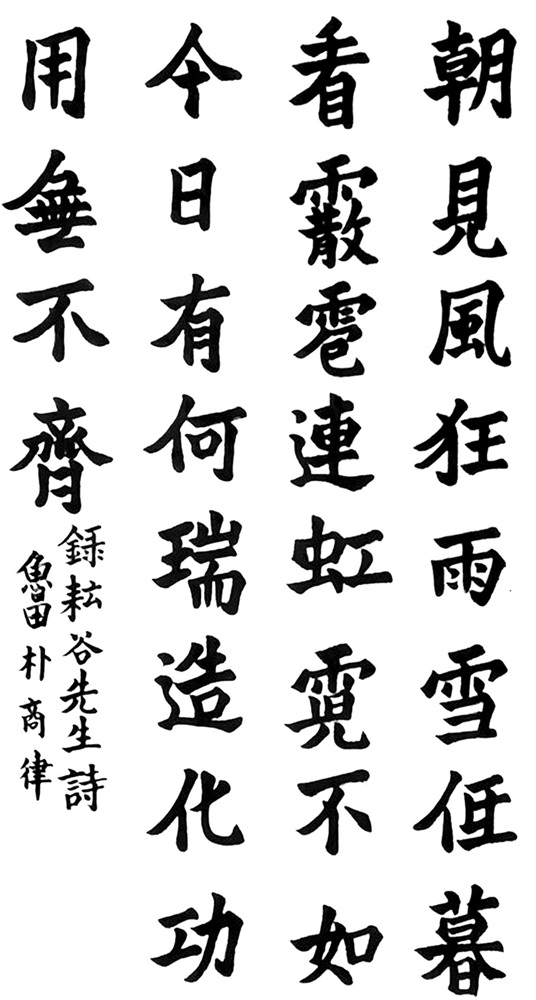 朝見風狂雨雪低暮
看霰雹連虹霓不如
今日有何瑞造化功
用無不齊
錄耘谷先生詩
魯田朴商律